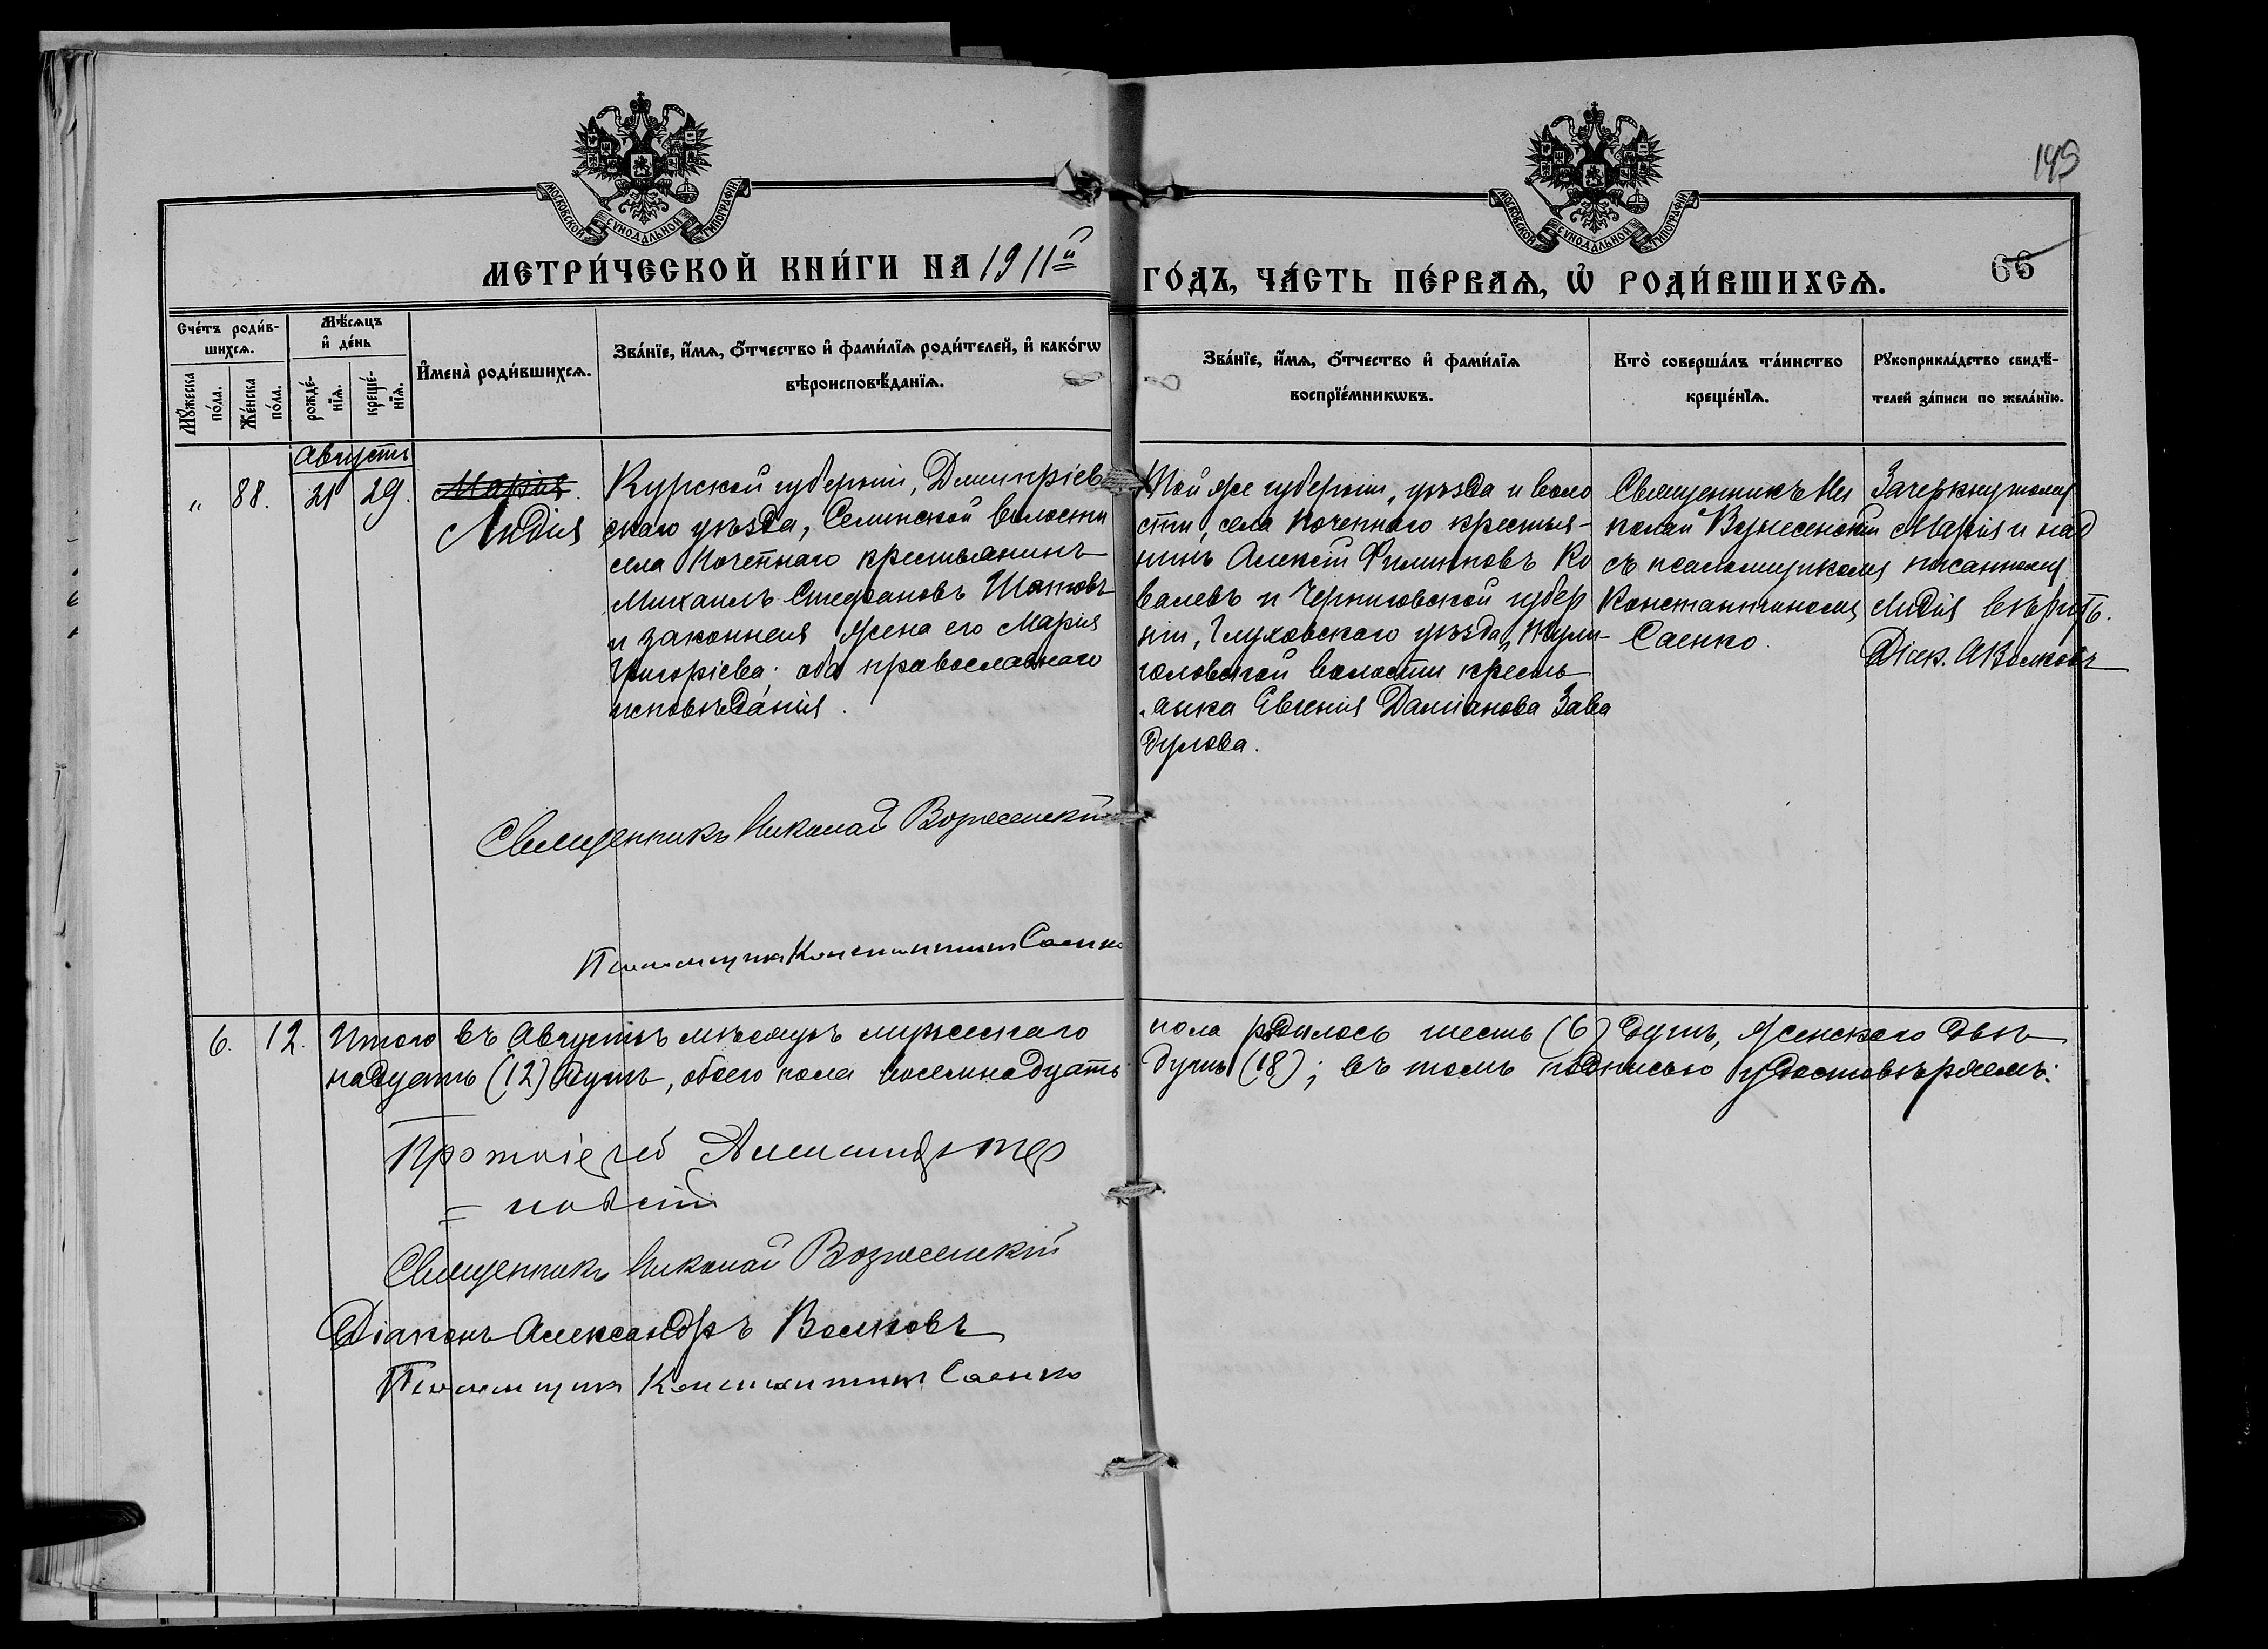 149
МОСКОВСКОЙ СѴНОДАЛЬНОЙ ТИПОГРАФІИ
МОСКОВСКОЙ СѴНОДАЛЬНОЙ ТИПОГРАФІИ
МЕТРИ́ЧЕСКОЙ КНИ́ГИ НА 1911й
ГО́ДЪ, ЧА́СТЬ ПЕ́РВАѦ, Ѡ҆ РОДИ́ВШИХСѦ.
66
Сче́тъ роди́в-
шихсѧ.
Мꙋ́жеска
по́ла.
Же́нска
по́ла.
Мѣ́сѧцъ
и҆ де́нь
рожде́-
нїѧ.
креще́-
нїѧ.
И҆мена̀ роди́вшихсѧ.
Зва́нїе, и҆́мѧ, ѻ҆́тчество и҆ фами́лїѧ роди́телей, и҆ како́гѡ
вѣроисповѣ́данїѧ.
Зва́нїе, и҆́мѧ, ѻ҆́тчество и҆ фами́лїѧ
воспрїе́мникѡвъ.
Кто̀ соверша́лъ та́инство
креще́нїѧ.
Рꙋкоприкла́дство свидѣ́-
телей за́писи по жела́нїю.
Августъ
„ 88. 21 29.
Марія.
Лидія
Курской губерніи, Дмитріев
скаго уѣзда, Селинской волости
села Кочетнаго крестьянинъ
Михаилъ Стефановъ
и законная жена его Марія
Григоріева. оба православнаго
исповѣданія.
Той же губерніи, уѣзда и воло
сти, села Кочетнаго крестья-
нинъ Алексій Филиповъ Ко
валевъ и Черниговской губер
ніи, Глуховскаго уѣзда,
головской волости кресть
янка Евгенія Даміанова Зава
дулова.
Священникъ Ни
колай Вознесенскій
съ псаломщикомъ
Константиномъ
Саенко.
Зачеркнутому
Марія и над
писанному
Лидія вѣрить.
Діак. А Волковъ
Священникъ Николай Вознесенскій
Псаломщикъ Константинъ Саенко
6. 12. Итого въ Августѣ мѣсяцѣ мужескаго
пола родилось шесть (6) душъ, женскаго двѣ
надцать (12) душъ, обоего пола восемнадцать
душъ (18); въ томъ подписью удостовѣряемъ:
Протоіерей
Священникъ Николай Вознесенскій
Діаконъ Александръ Волковъ
Псаломщикъ Константинъ Саенко